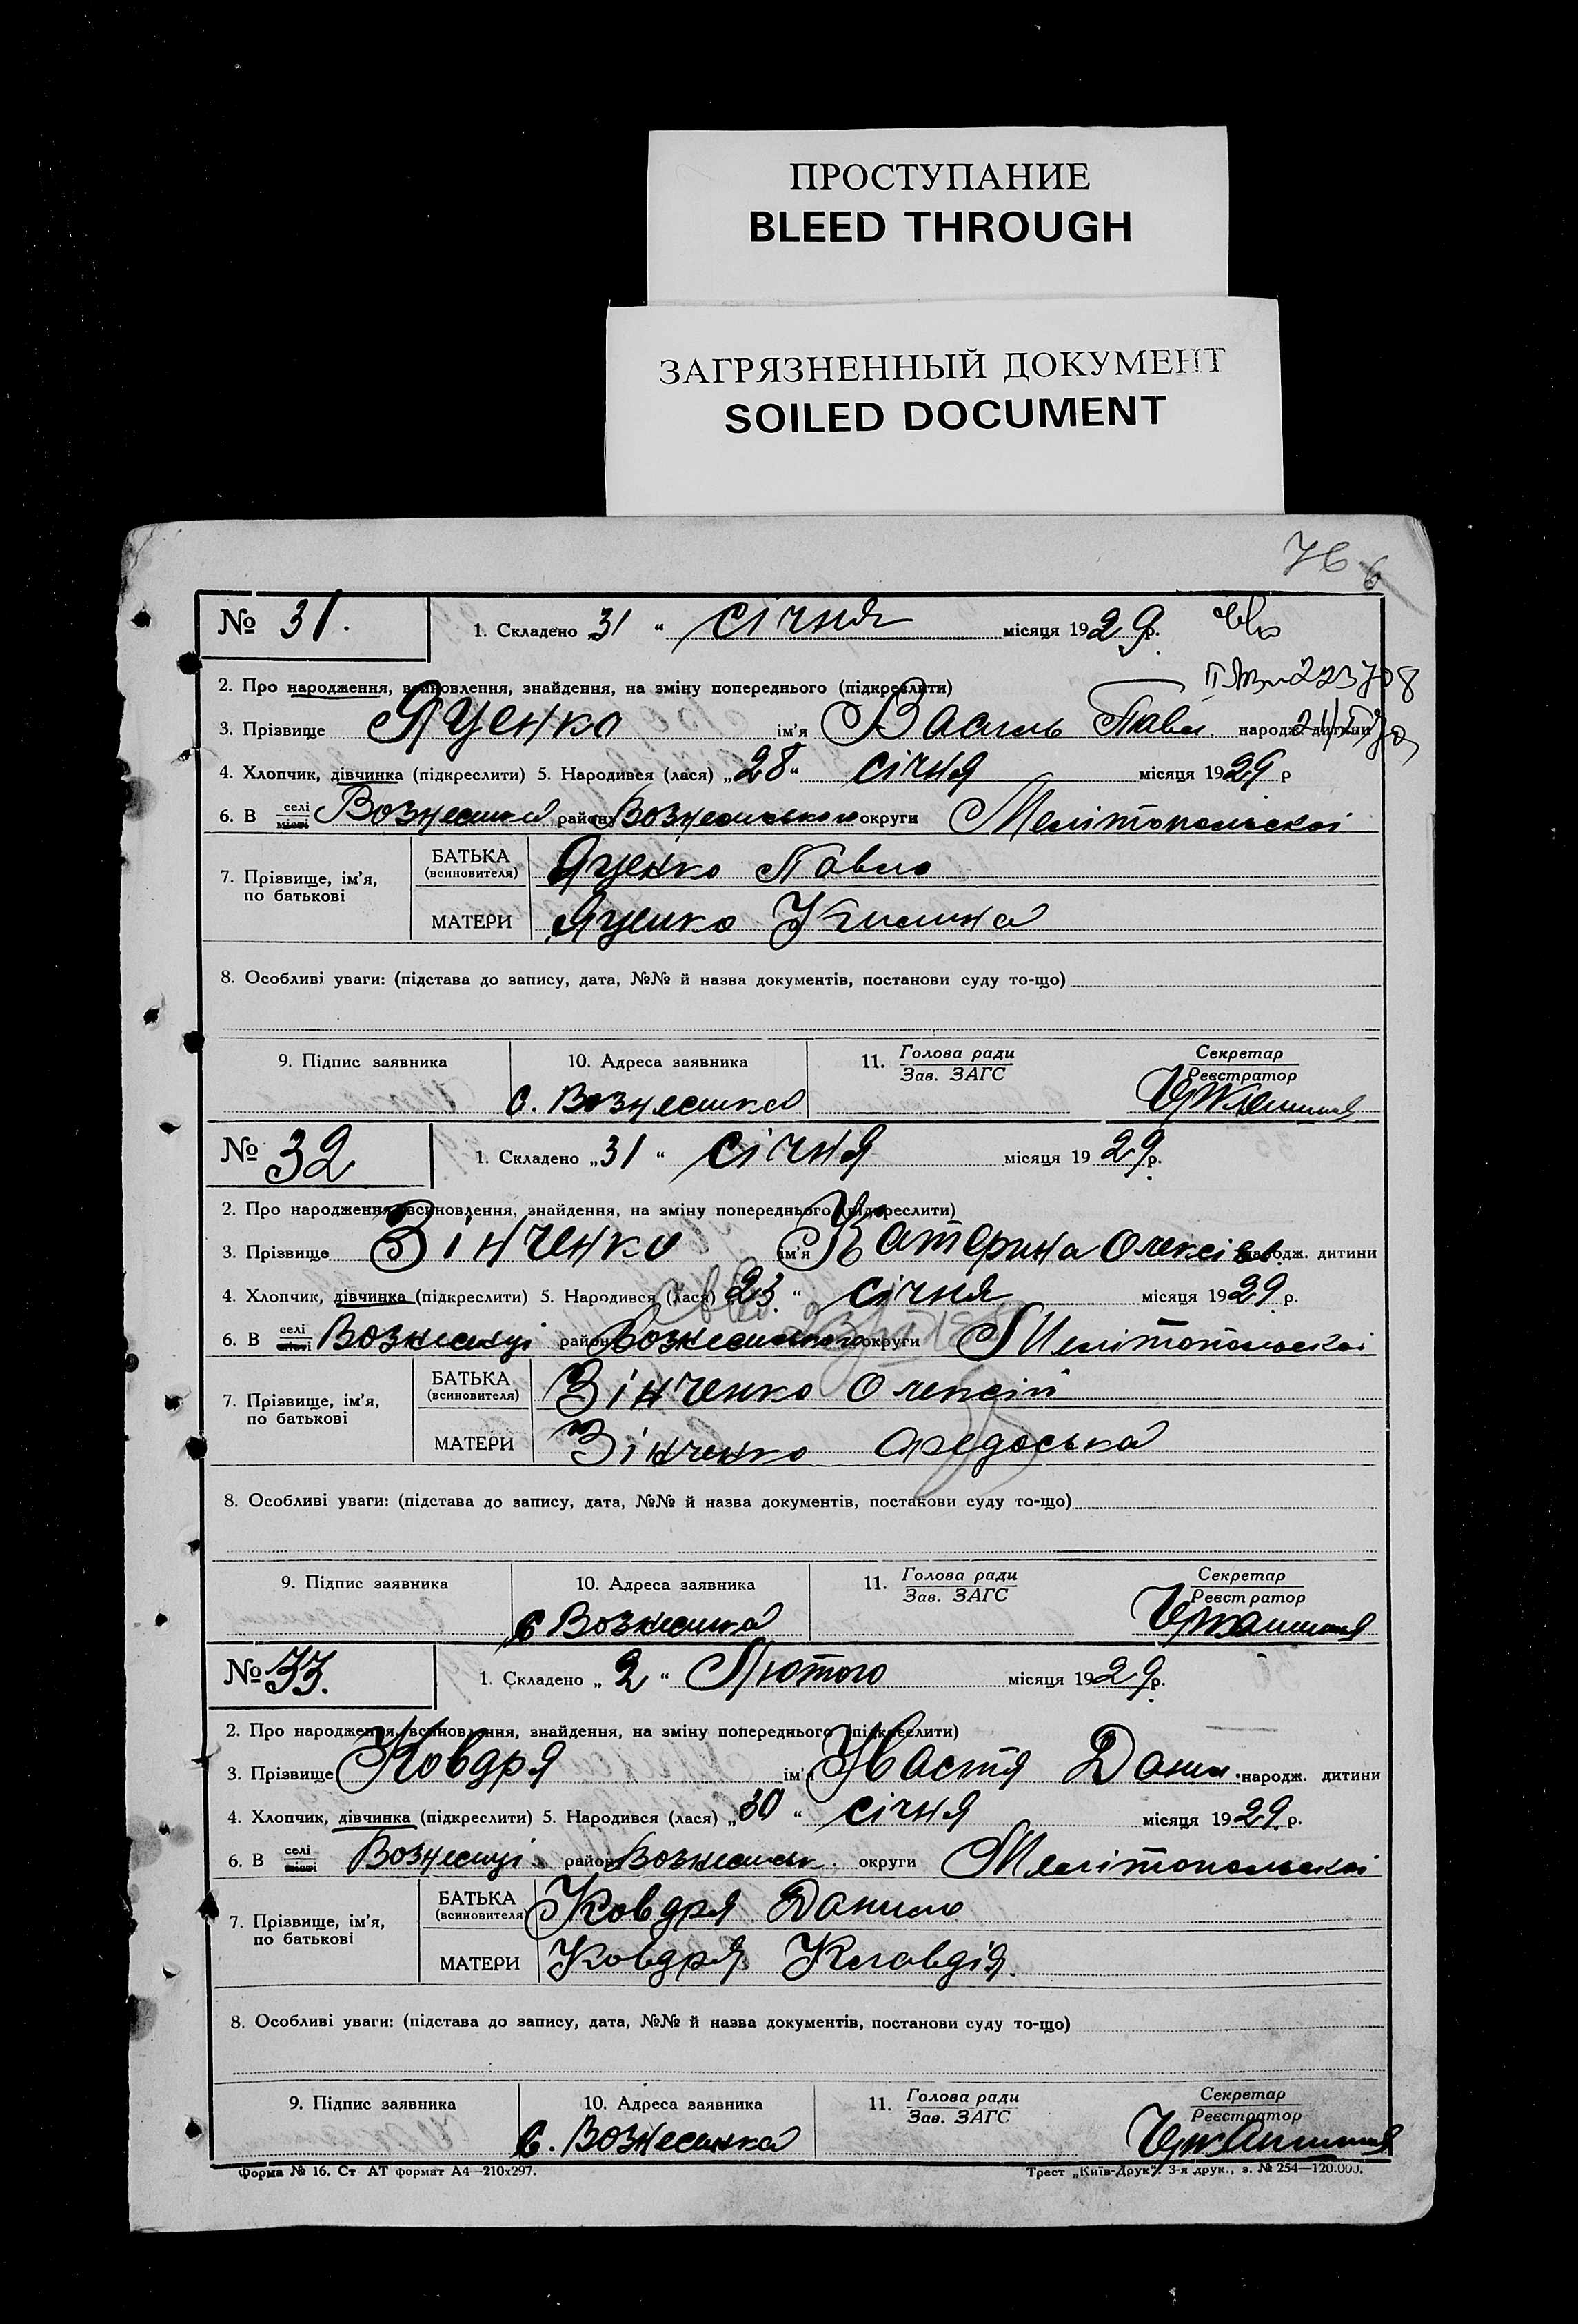 ПРОСТУПАНИЕ
BLEED THROUGH
ЗАГРЯЗНЕННЫЙ ДОКУМЕНТ
SOILED DOCUMENT
76
6
№ 31. 1. Складено 31 " січня місяця 1929 р.
2. Про народження, всиновлення, знайдення, на зміну попереднього (підкреслити)
3. Прізвище Яценко ім'я Василь Павл. народж. дитини
4. Хлопчик, дівчинка (підкреслити) 5. Народився (лася) „28" січня місяця 1929 р
6. В селі місті Вознесинка району Вознесинського округи Мелітопольскоі
7. Прізвище, ім'я, по батькові БАТЬКА (всиновителя) Яценко Павло
МАТЕРИ Яценко Килина
8. Особливі уваги: (підстава до запису, дата, №№ й назва документів, постанови суду то-що)
9. Підпис заявника 10. Адреса заявника 11. Голова ради Зав. ЗАГС Секретар Реєстратор
с. Вознесинка
№ 32 1. Складено „31 " січня місяця 1929 р.
2. Про народження, всиновлення, знайдення, на зміну попереднього (підкреслити)
3. Прізвище Зінченко ім'я Катерина Олексієв. народж. дитини
4. Хлопчик, дівчинка (підкреслити) 5. Народився (лася) 23 " січня місяця 1929 р.
6. В селі місті Вознесинці району Вознесинського округи Мелітопольскоі
7. Прізвище, ім'я, по батькові БАТЬКА (всиновителя) Зінченко Олексій
МАТЕРИ Зінченко Федоська
8. Особливі уваги: (підстава до запису, дата, №№ й назва документів, постанови суду то-що)
9. Підпис заявника 10. Адреса заявника 11. Голова ради Зав. ЗАГС Секретар Реєстратор
с Вознесинка
№ 33. 1. Складено „ 2 " Лютого місяця 1929 р.
2. Про народження, всиновлення, знайдення, на зміну попереднього (підкреслити)
3. Прізвище Ковдря ім'я Настя Данил. народж. дитини
4. Хлопчик, дівчинка (підкреслити) 5. Народився (лася) „30 " січня місяця 1929 р.
6. В селі місті Вознесинці району Вознесинськ. округи Мелітопольскоі
7. Прізвище, ім'я, по батькові БАТЬКА (всиновителя) Ковдря Данило
МАТЕРИ Ковдря Клавдія.
8. Особливі уваги: (підстава до запису, дата, №№ й назва документів, постанови суду то-що)
9. Підпис заявника 10. Адреса заявника 11. Голова ради Зав. ЗАГС Секретар Реєстратор
С. Вознесинка
Форма № 16. Ст АТ формат А4—210х297. Трест „Київ-Друк". 3-я друк., з. № 254—120.000.